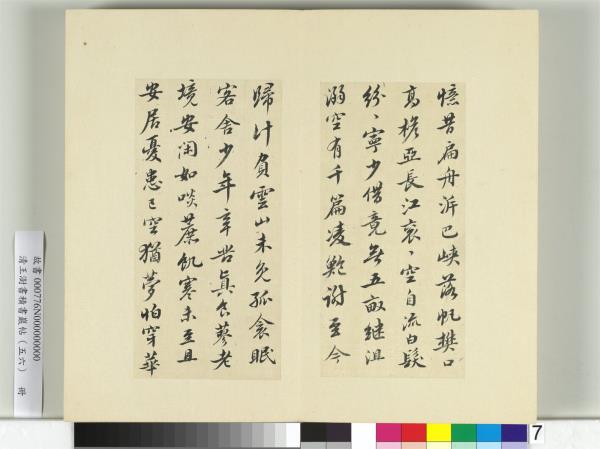 憶昔扁舟泝巴峽落帆樊口
高桅亞長江袞、空自流白髮
紛、寧少借竟無五畝繼沮
溺空有千篇凌鮑謝至今
歸計負雲山未免孤衾眠
客舍少年辛苦真食蓼老
境安閑如啖蔗飢寒未至且
安居憂患已空猶夢怕穿華
故書 000776N000000000
清王澍書積書巖帖(五六) 冊
7